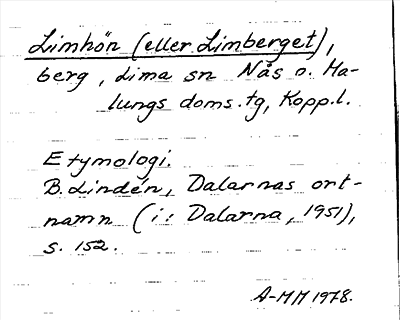 Limhön (eller Limberget),
berg, Lima sn Nås o. Ma-
lungs doms.tg, Kopp.l.
Etymologi.
B. Lindén, Dalarnas ort-
namn (i: Dalarna, 1951),
s. 152.
A-MM 1978.